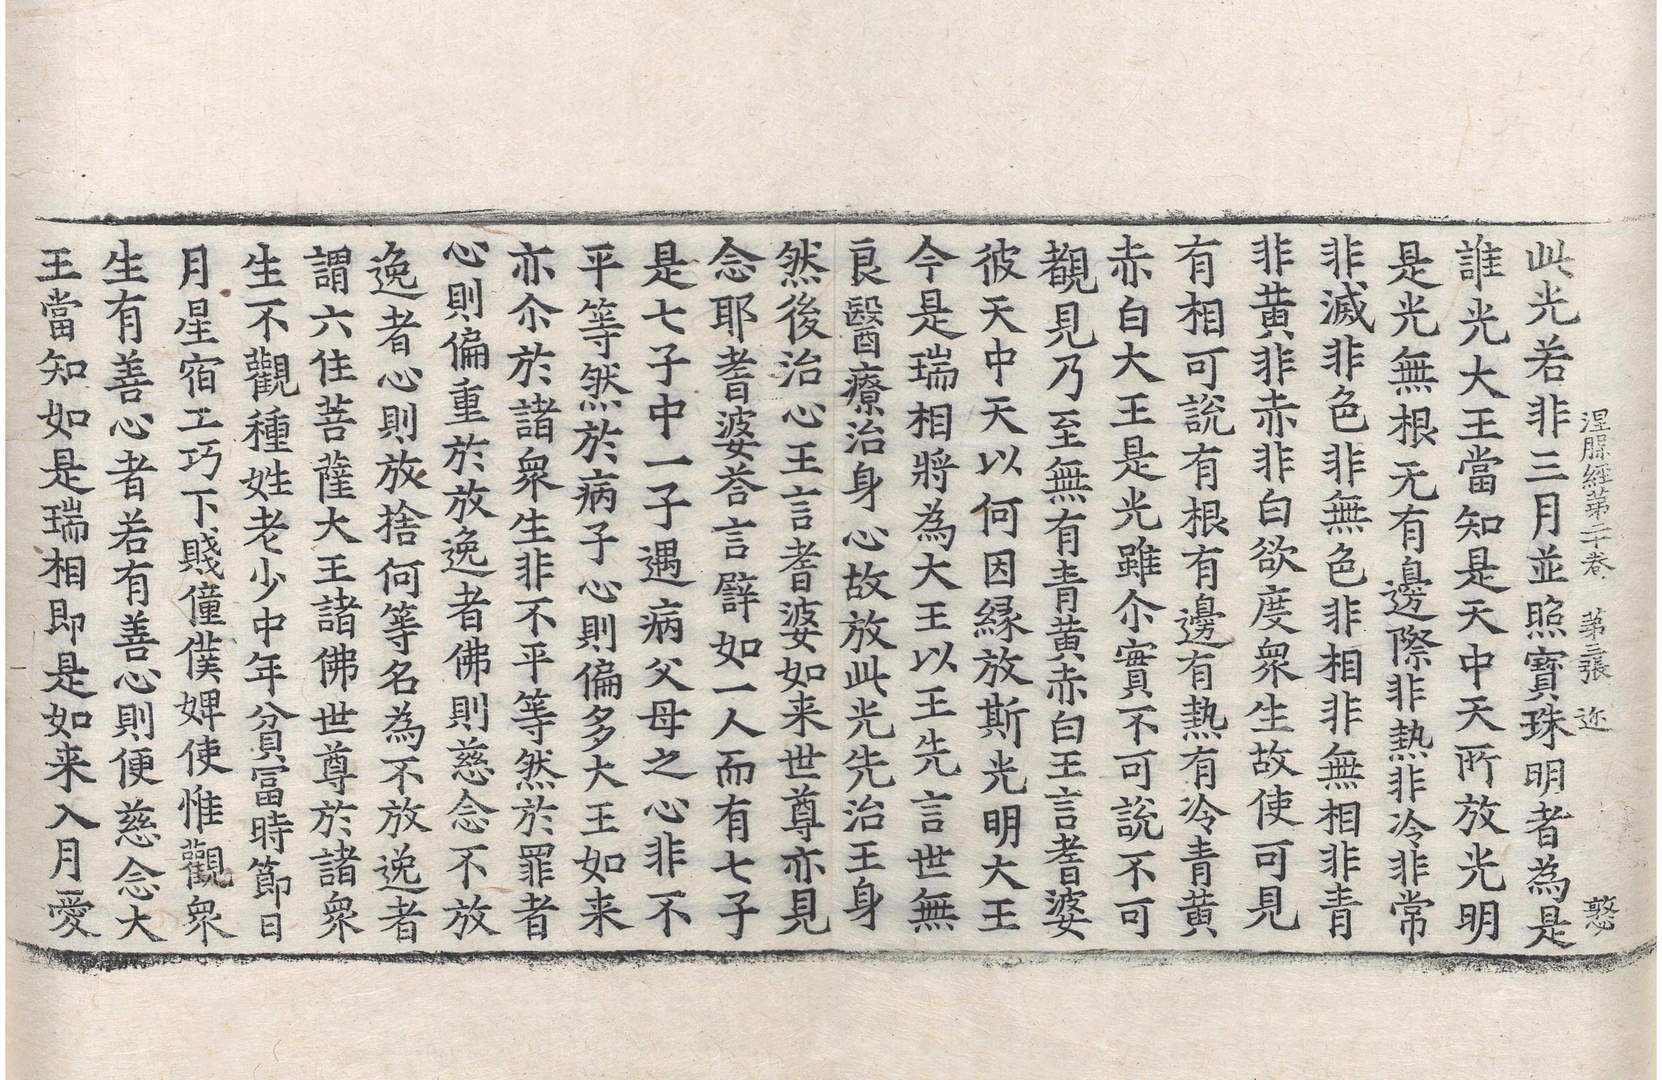 涅槃經第二十卷 第三張 迩 憨
此光若非三月並照寶珠明者為是
誰光大王當知是天中天所放光明
是光無根无有邊際非熱非冷非常
非滅非色非無色非相非無相非青
非黃非赤非白欲度衆生故使可見
有相可說有根有邊有熱有冷青黃
赤白大王是光雖尒實不可說不可
觀見乃至無有青黃赤白王言耆婆
彼天中天以何因緣放斯光明大王
今是瑞相將為大王以王先言世無
良醫療治身心故放此光先治王身
然後治心王言耆婆如来世尊亦見
念耶耆婆荅言譬如一人而有七子
是七子中一子遇病父母之心非不
平等然於病子心則偏多大王如来
亦尒於諸衆生非不平等然於罪者
心則偏重於放逸者佛則慈念不放
逸者心則放捨何等名為不放逸者
謂六住菩薩大王諸佛世尊於諸衆
生不觀種姓老少中年貧富時節日
月星宿工巧下賤僮僕婢使惟觀衆
生有善心者若有善心則便慈念大
王當知如是瑞相即是如来入月愛